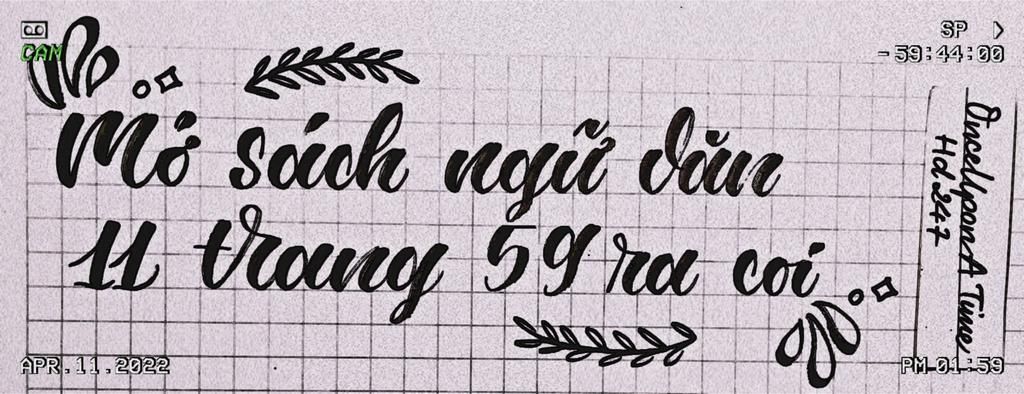 CAM
SP
-59:44:00
Mở sách ngữ văn
11 trang 59 ra coi
OnceUponA Time
Hd247
APR.11.2022
PM 01:59